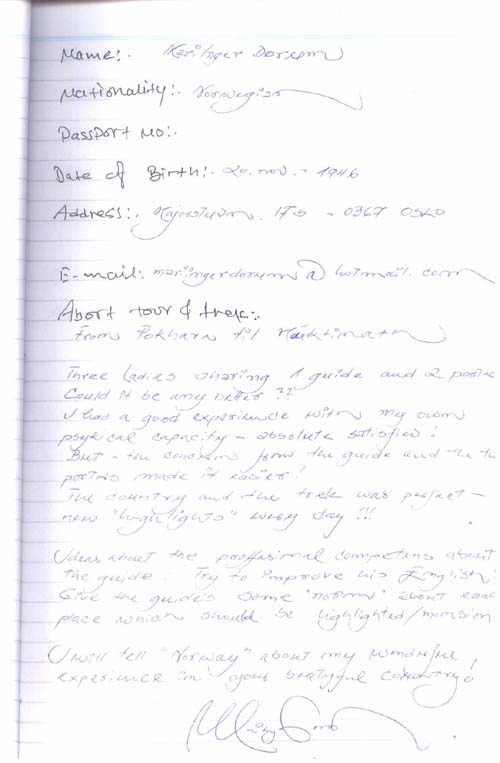 Name:.
Nationality:. Norwegian
Passport No:.
Date of Birth:. 20. nov. - 1946
Address:. 17 - 0367 Oslo
E-mail: maringerdorum@hotmail.com
Abort tour & trek:.
From Pokhara til
Three ladies sharing 1 guide and 2 porte
Could it be any better ??
I had a good experience with my own
psykical capacity - absolute satisfied!
But - the concern from the guide and the t
made it easier!
The country and the trek was perfect -
new "highlights" every day !!!
Ideas about the proffesional competans about
the guide: Try to improve his English!
Give the guides some "norms" about each
place which should be highlighted/
I will tell "Norway" about my
experience in your country!